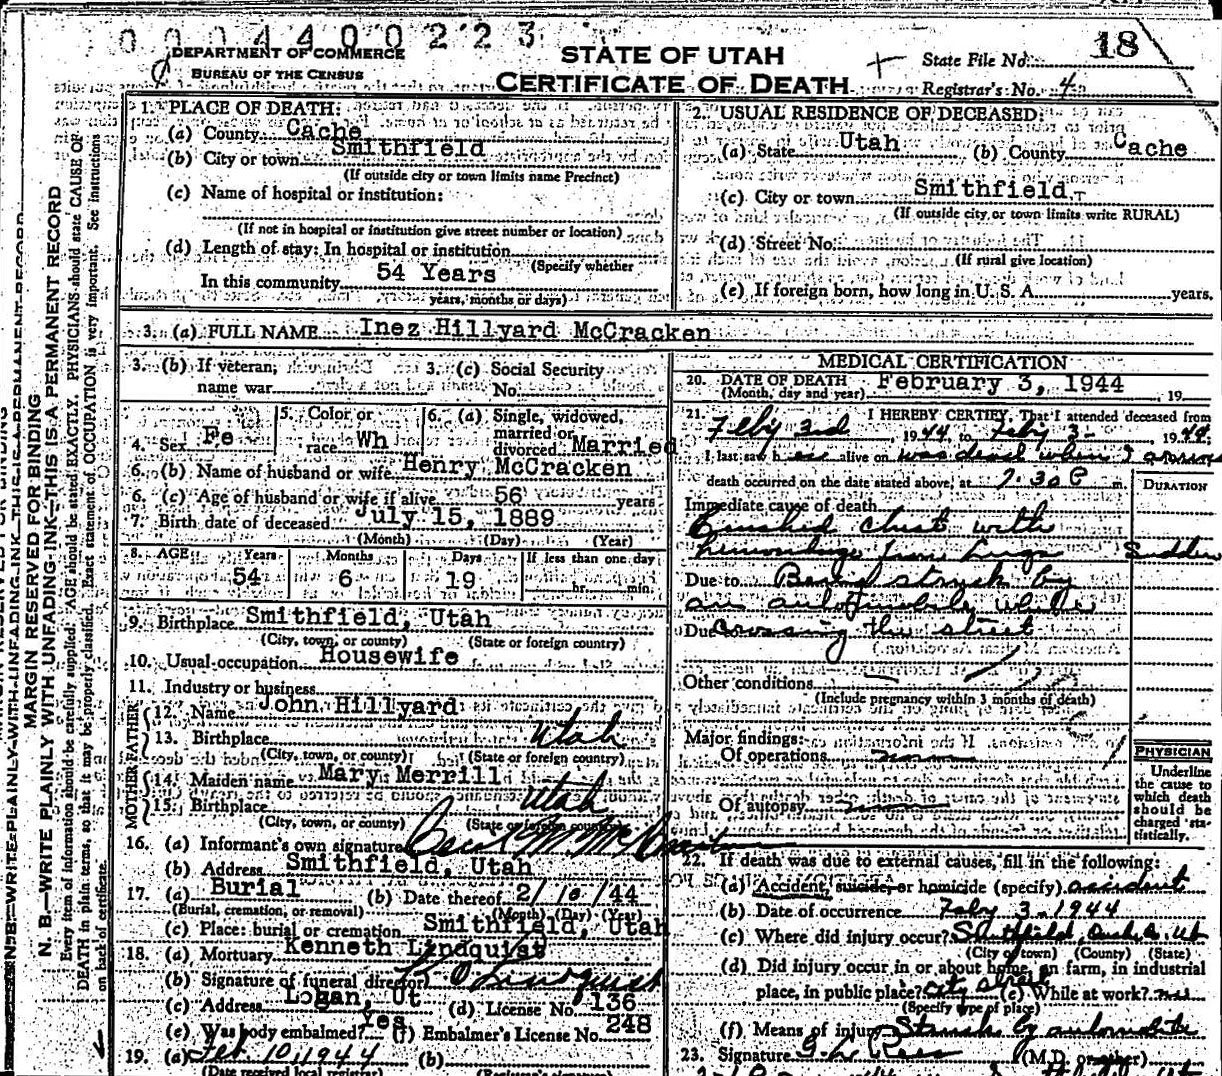 0004400223
DEPARTMENT OF COMMERCE
BUREAU OF THE CENSUS
STATE OF UTAH
CERTIFICATE OF DEATH
State File No. 18
Registrar's No. 4
MARGIN RESERVED FOR BINDING
N. B.—WRITE PLAINLY WITH UNFADING INK—THIS IS A PERMANENT RECORD
Every item of information should be carefully supplied. AGE should be stated EXACTLY. PHYSICIANS should state CAUSE OF
DEATH in plain terms, so that it may be properly classified. Exact statement of OCCUPATION is very important. See instructions
on back of certificate.
1. PLACE OF DEATH:
(a) County Cache
(b) City or town Smithfield
(If outside city or town limits name Precinct)
(c) Name of hospital or institution:
(If not in hospital or institution give street number or location)
(d) Length of stay: In hospital or institution
(Specify whether
In this community 54 Years
years, months or days)
2. USUAL RESIDENCE OF DECEASED:
(a) State Utah (b) County Cache
(c) City or town Smithfield
(If outside city or town limits write RURAL)
(d) Street No.
(If rural give location)
(e) If foreign born, how long in U. S. A. years.
3. (a) FULL NAME Inez Hillyard McCracken
3. (b) If veteran, name war
3. (c) Social Security No.
4. Sex Fe
5. Color or race Wh
6. (a) Single, widowed, married or divorced Married
6. (b) Name of husband or wife Henry McCracken
6. (c) Age of husband or wife if alive 56 years
7. Birth date of deceased July 15, 1889
(Month) (Day) (Year)
8. AGE Years Months Days If less than one day
54 6 19 hr. min.
9. Birthplace Smithfield, Utah
(City, town, or county) (State or foreign country)
10. Usual occupation Housewife
11. Industry or business
FATHER
12. Name John Hillyard
13. Birthplace Utah
(City, town, or county) (State or foreign country)
MOTHER
14. Maiden name Mary Merrill
15. Birthplace Utah
(City, town, or county) (State or foreign country)
16. (a) Informant's own signature
(b) Address Smithfield, Utah
17. (a) Burial (b) Date thereof 2/10/44
(Burial, cremation, or removal) (Month) (Day) (Year)
(c) Place: burial or cremation Smithfield, Utah
18. (a) Mortuary Kenneth Lindquist
(b) Signature of funeral director Lindquist
(c) Address Logan, Ut (d) License No. 136
(e) Was body embalmed? Yes (f) Embalmer's License No. 248
19. (a) Feb. 10, 1944 (b)
(Date received local registrar) (Registrar's signature)
MEDICAL CERTIFICATION
20. DATE OF DEATH February 3, 1944, 19
(Month, day and year)
21. I HEREBY CERTIFY, That I attended deceased from
Feby 3rd, 1944 to Feby 3-, 1944;
I last saw h er alive on was dead when I arrived
death occurred on the date stated above, at 7:30 P m.
DURATION
Immediate cause of death
Crushed chest with
hemorrhage from lungs Sudden
Due to Being struck by
an automobile while
Due to crossing the street
Other conditions
(Include pregnancy within 3 months of death)
Major findings:
Of operations none
Of autopsy
PHYSICIAN
Underline
the cause to
which death
should be
charged sta-
tistically.
22. If death was due to external causes, fill in the following:
(a) Accident, suicide, or homicide (specify) accident
(b) Date of occurrence Feby 3-1944
(c) Where did injury occur? Smithfield, Cache, Ut
(City or town) (County) (State)
(d) Did injury occur in or about home, on farm, in industrial
place, in public place? city street (e) While at work? no
(Specify type of place)
(f) Means of injury Struck by automobile
23. Signature (M.D. or other)